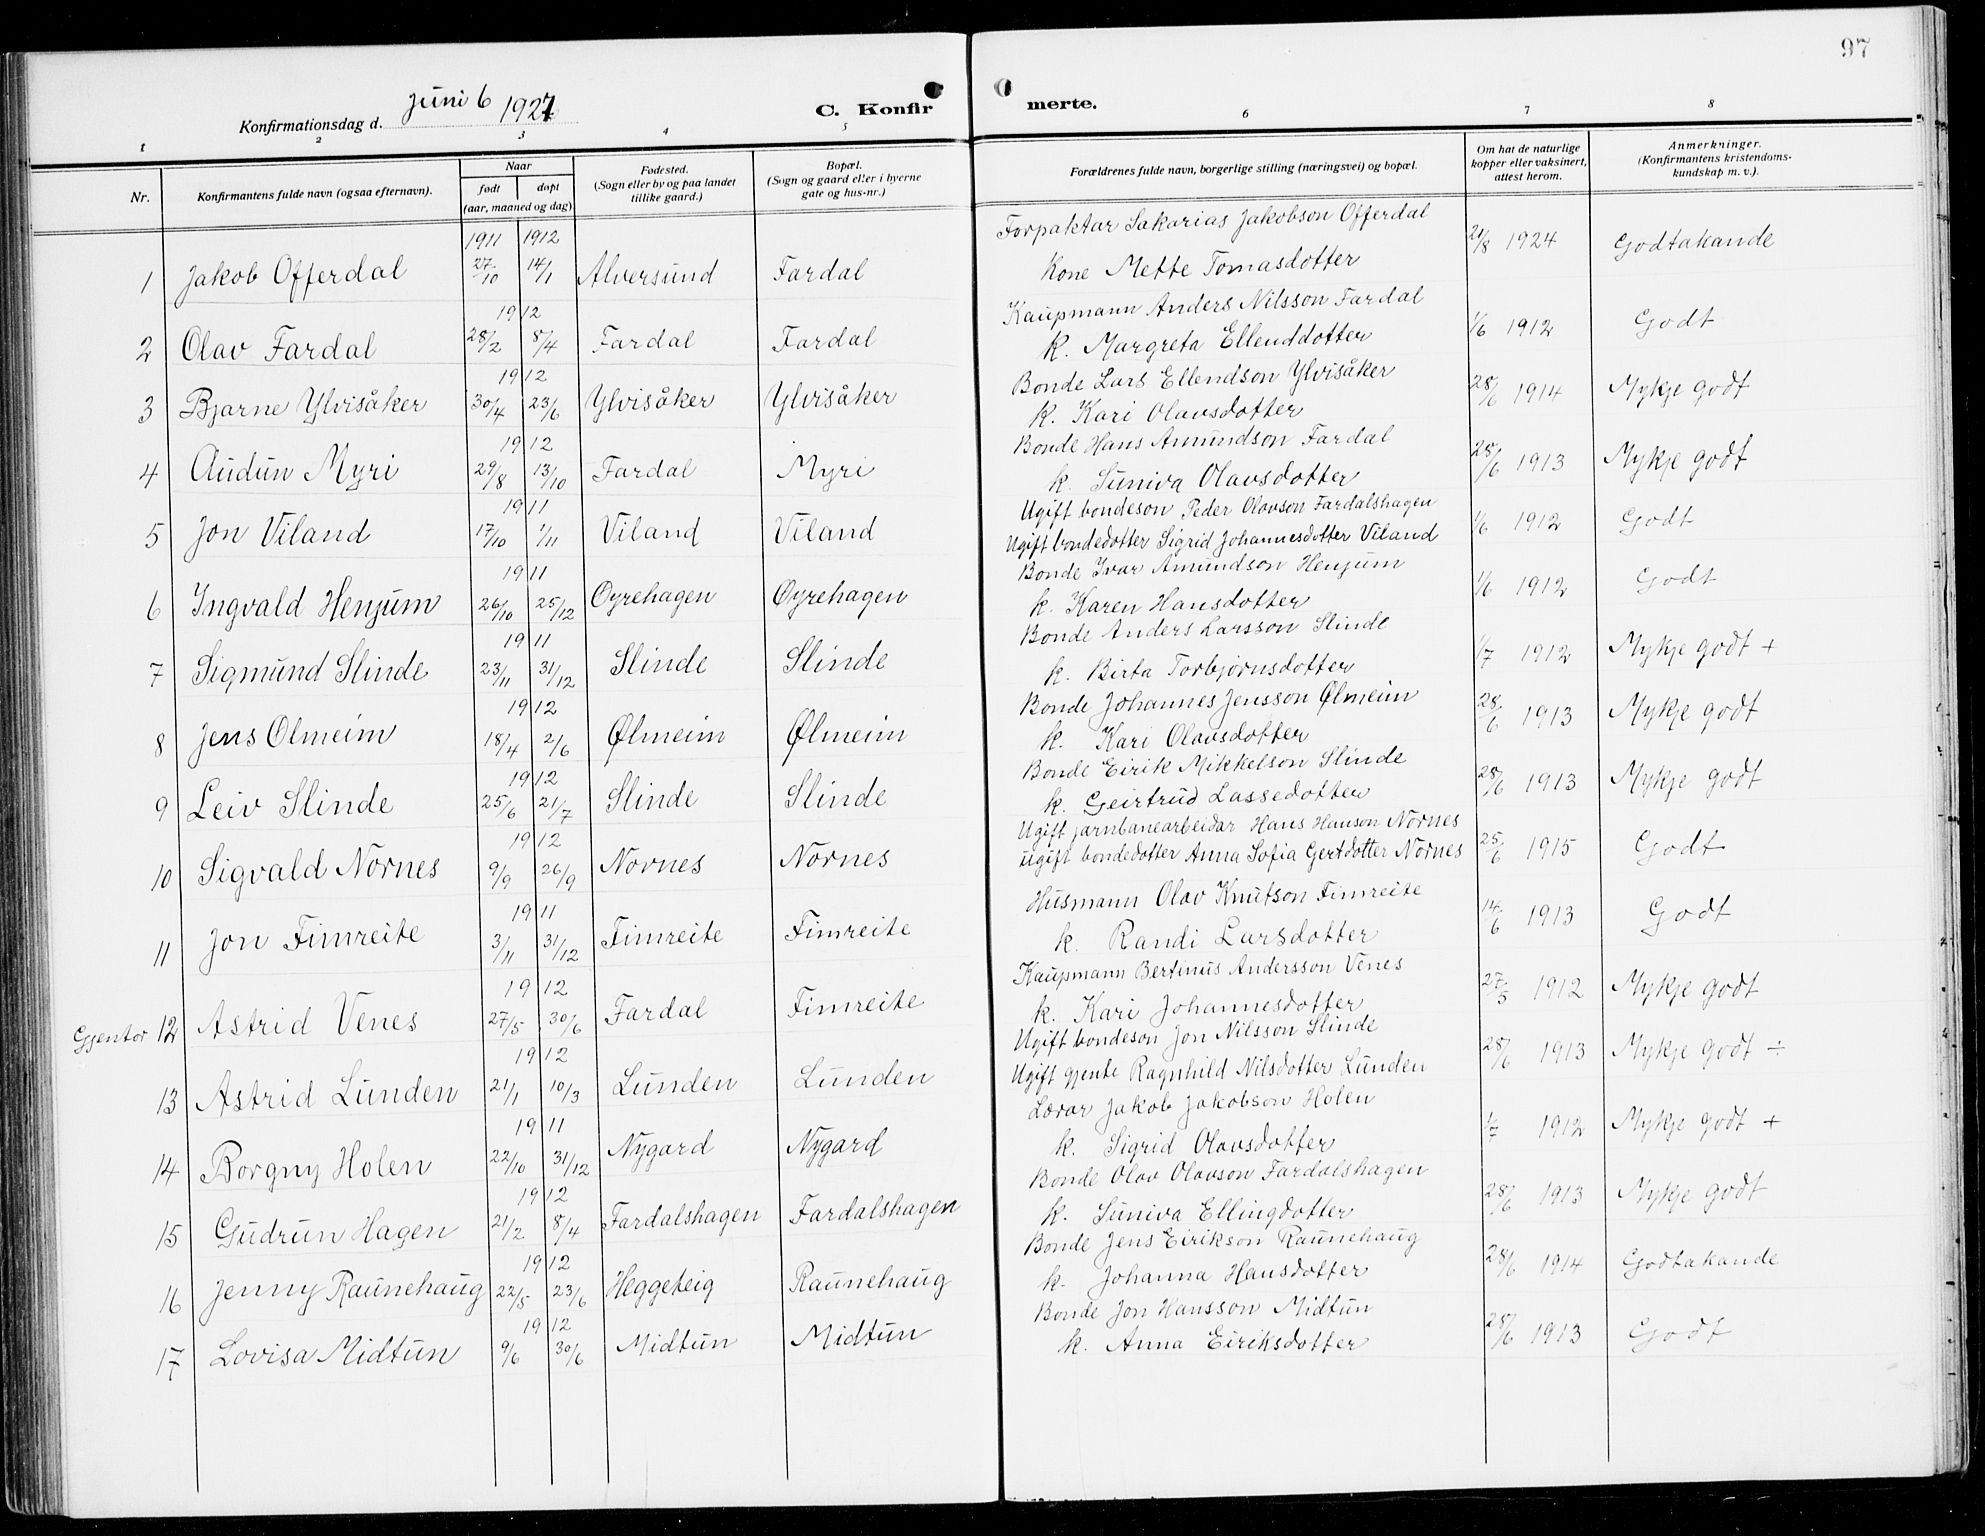 97
Konfirmationsdag d. Juni 6 1927
C. Konfir merte.
1 2 3 4 5 6 7 8
Nr. Konfirmantens fulde navn (ogsaa efternavn). Naar født døpt (aar, maaned og dag) Fødested. (Sogn eller by og paa landet tillike gaard.) Bopæl. (Sogn og gaard eller i byerne gate og hus-nr.) Forældrenes fulde navn, borgerlige stilling (næringsvei) og bopæl. Om hat de naturlige kopper eller vaksinert, attest herom. Anmerkninger. (Konfirmantens kristendoms- kundskap m. v.).
1911 1912 Forpaktar Sakarias Jakobson Offerdal
1 Jakob Offerdal 27/10 14/1 Alversund Fardal Kone Mette Tomasdotter 21/8 1924 Godtakande
1912 Kaupmann Anders Nilsson Fardal
2 Olav Fardal 28/2 8/4 Fardal Fardal k. Margreta Ellenddotter 1/6 1912 Godt
1912 Bonde Lars Ellendson Ylvisåker
3 Bjarne Ylvisåker 30/4 23/6 Ylvisåker Ylvisåker k. Kari Olavsdotter 28/6 1914 Mykje godt
1912 Bonde Hans Amundson Fardal
4 Audun Myri 29/8 13/10 Fardal Myri k. Suniva Olavsdotter 28/6 1913 Mykje godt
1911 Ugift bondeson Peder Olavson Fardalshagen
5 Jon Viland 17/10 1/11 Viland Viland Ugift bondedotter Sigrid Johannesdotter Viland 1/6 1912 Godt
1911 Bonde Ivar Amundson Henjum
6 Ingvald Henjum 26/10 25/12 Øyrehagen Øyrehagen k. Karen Hansdotter 1/6 1912 Godt
1911 Bonde Anders Larsson Slinde
7 Sigmund Slinde 23/11 31/12 Slinde Slinde k. Birta Torbjørnsdotter 1/7 1912 Mykje godt +
1912 Bonde Johannes Jensson Ølmeim
8 Jens Olmeim 18/4 2/6 Ølmeim Ølmeim k. Kari Olavsdotter 28/6 1913 Mykje godt
1912 Bonde Eirik Mikkelson Slinde
9 Leiv Slinde 25/6 21/7 Slinde Slinde k. Geirtrud Lassedotter 28/6 1913 Mykje godt
1912 Ugift jarnbanearbeidar Hans Hanson Nornes
10 Sigvald Nornes 9/9 26/9 Nornes Nornes ugift bondedotter Anna Sofia Gertdotter Nornes 25/6 1915 Godt
1911 Husmann Olav Knutson Fimreite
11 Jon Fimreite 3/11 31/12 Fimreite Fimreite k. Randi Larsdotter 14/6 1913 Godt
1912 Kaupmann Bertinus Andersson Venes
Gjentor 12 Astrid Venes 27/5 30/6 Fardal Fimreite k. Kari Johannesdotter 27/5 1912 Mykje godt
1912 Ugift bondeson Jon Nilsson Slinde
13 Astrid Lunden 21/1 10/3 Lunden Lunden Ugift gjente Ragnhild Nilsdotter Lunden 28/6 1913 Mykje godt ÷
1911 Lærar Jakob Jakobson Holen
14 Borgny Holen 22/10 31/12 Nygard Nygard k. Sigrid Olavsdotter 1/7 1912 Mykje godt +
1912 Bonde Olav Olavson Fardalshagen
15 Gudrun Hagen 21/2 8/4 Fardalshagen Fardalshagen k. Suniva Ellingdotter 28/6 1913 Mykje godt
1912 Bonde Jens Eirikson Raunehaug
16 Jenny Raunehaug 22/5 23/6 Heggeteig Raunehaug k. Johanna Hansdotter 28/6 1914 Godtakande
1912 Bonde Jon Hansson Midtun
17 Lovisa Midtun 9/6 30/6 Midtun Midtun k. Anna Eiriksdotter 28/6 1913 Godt